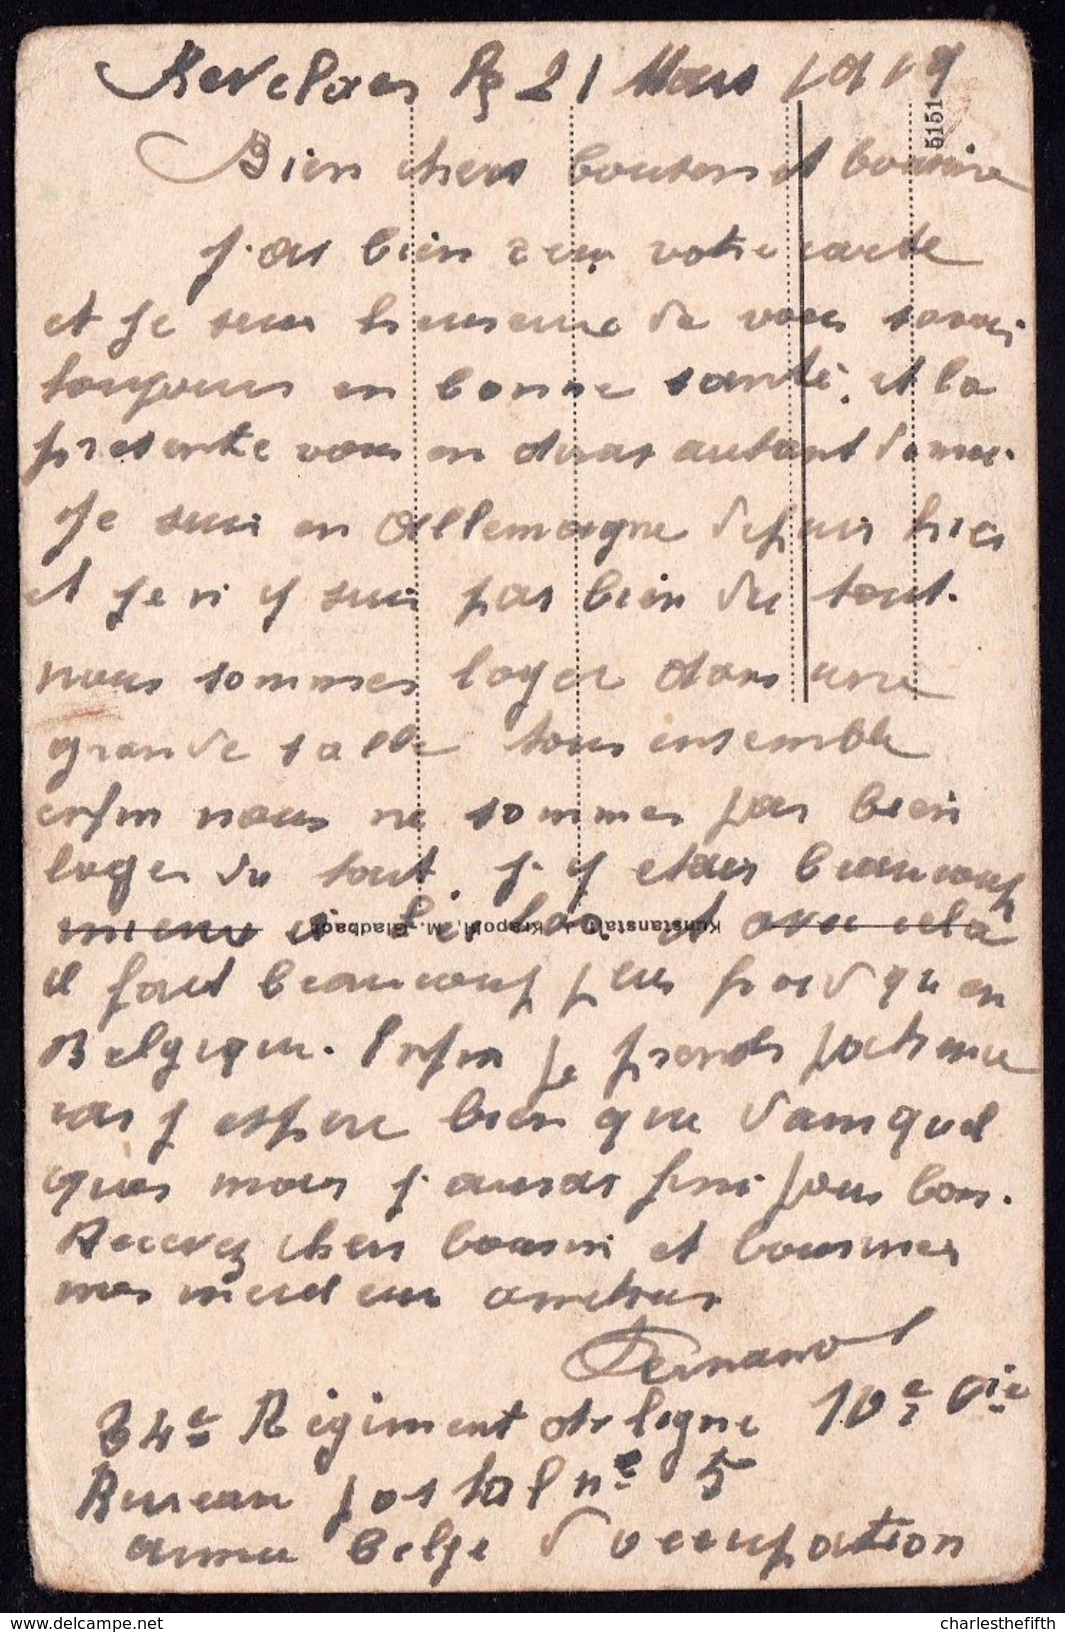 Kevelaer le 21 Mars 1919
5151
Bien chers cousins et cousine
j'ai bien reçu votre carte
et je suis heureux de vous savoir
toujours en bonne santé, et la
presente vous en diras autant de moi.
Je suis en Allemaigne depuis hier
et je n'y suis pas bien du tout.
nous sommes loger dans une
grande salle tous ensemble
enfin nous ne sommes pas bien
loger du tout. j'y etais beaucoup
Kunstanstalt J. Krapohl, M.-Gladbach
mieux et avec cela
il fait beaucoup plus froid qu'en
Belgique. Enfin je prends patience
car j'espere bien que dans quel
ques mois j'aurai fini pour bon.
Recevez chers cousin et cousines
mes meilleur amitius
Fernand
34e Régiment de ligne 10e Cie
Bureau postal n° 5
armee belge d'occupation
delcampe.net
charlesthefifth